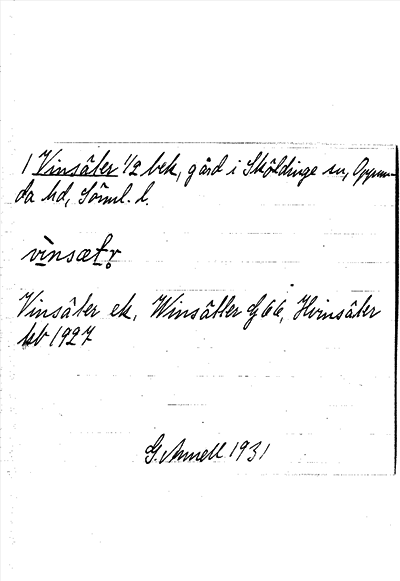 1 Vinsäter 1/2 bek, gård i Sköldinge sn, Oppun-
da hd, Söml. l.
vìnsætr̥
Vinsäter ek, Winsätter GJ 66, Hvinsäter
kb 1927
G. Annell 1931